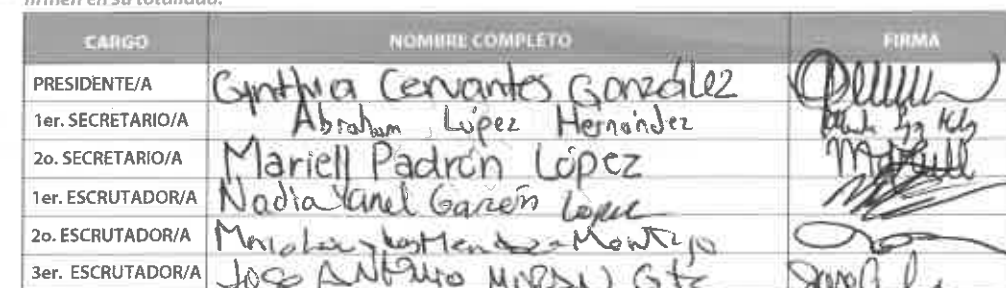 firmen en su totalidad.
CARGO NOMBRE COMPLETO FIRMA
PRESIDENTE/A Cynthia Cervantes González
1er. SECRETARIO/A Abraham López Hernández
2o. SECRETARIO/A Mariell Padrón López
1er. ESCRUTADOR/A Nadia Yanel Garzón López
2o. ESCRUTADOR/A Mendoza Montejo
3er. ESCRUTADOR/A JOSE ANTONIO